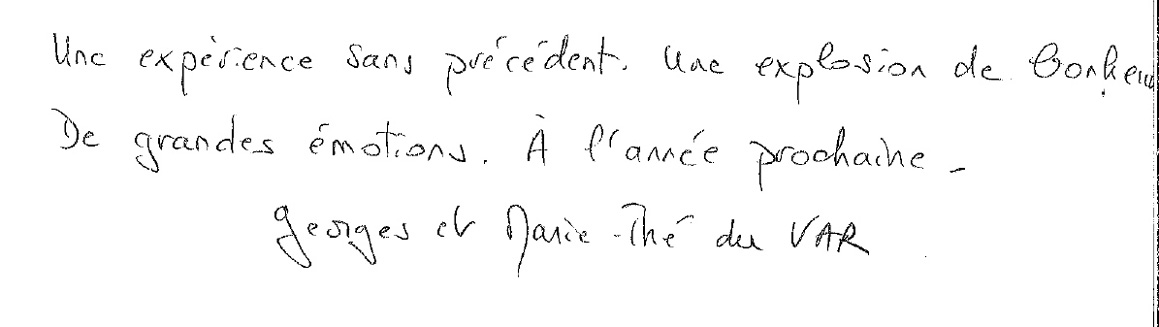 Une expérience sans précédent. Une explosion de bonheur
De grandes émotions. À l'année prochaine -
Georges et Marie-Thé du VAR